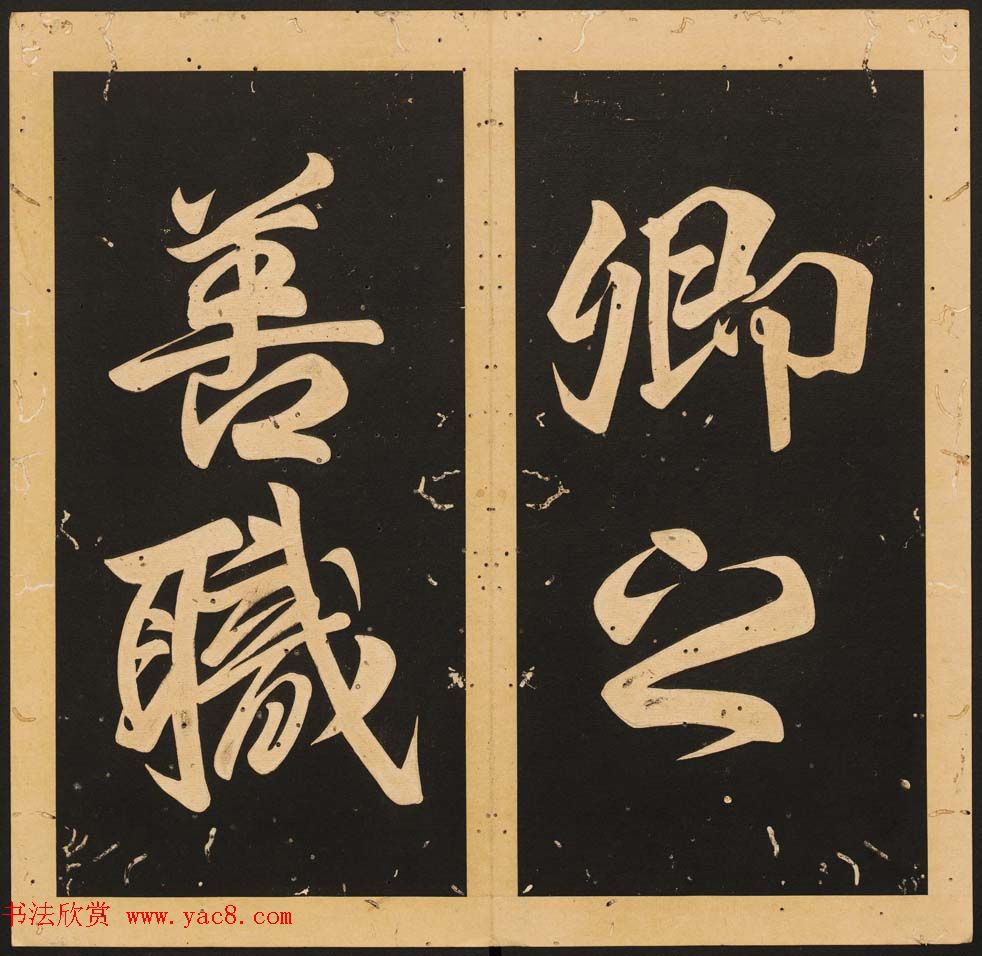 卿之
善職
书法欣赏 www.yac8.com